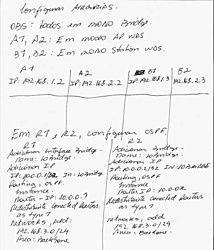 Configurar Antenas.
OBS: todos em modo Bridge.
A1, A2: Em modo AP WDS
B1, B2: Em modo Station WDS.
A1
IP: 192.168.1.2
A2
IP: 192.168.2.2
B1
IP: 192.168.1.3
B2
192.168.2.3
Em R1, R2, Configurar OSPF.
R1
Adicionar Interface Bridge.
Name: loBridge.
Adicionar IP
Routing, OSPF.
Instance.
Redistribute Connected Routes
as type 1
networks, add.
192.168.3.0/24
Area: Backbone.
R2
Adicionar Bridge
Name: loBridge.
Adicionar IP
Routing, OSPF.
Instance
Router IP: 10.0.0.2
Redistribute Connected Routes
as type 1
networks, add
192.168.3.0/24
Area: Backbone.